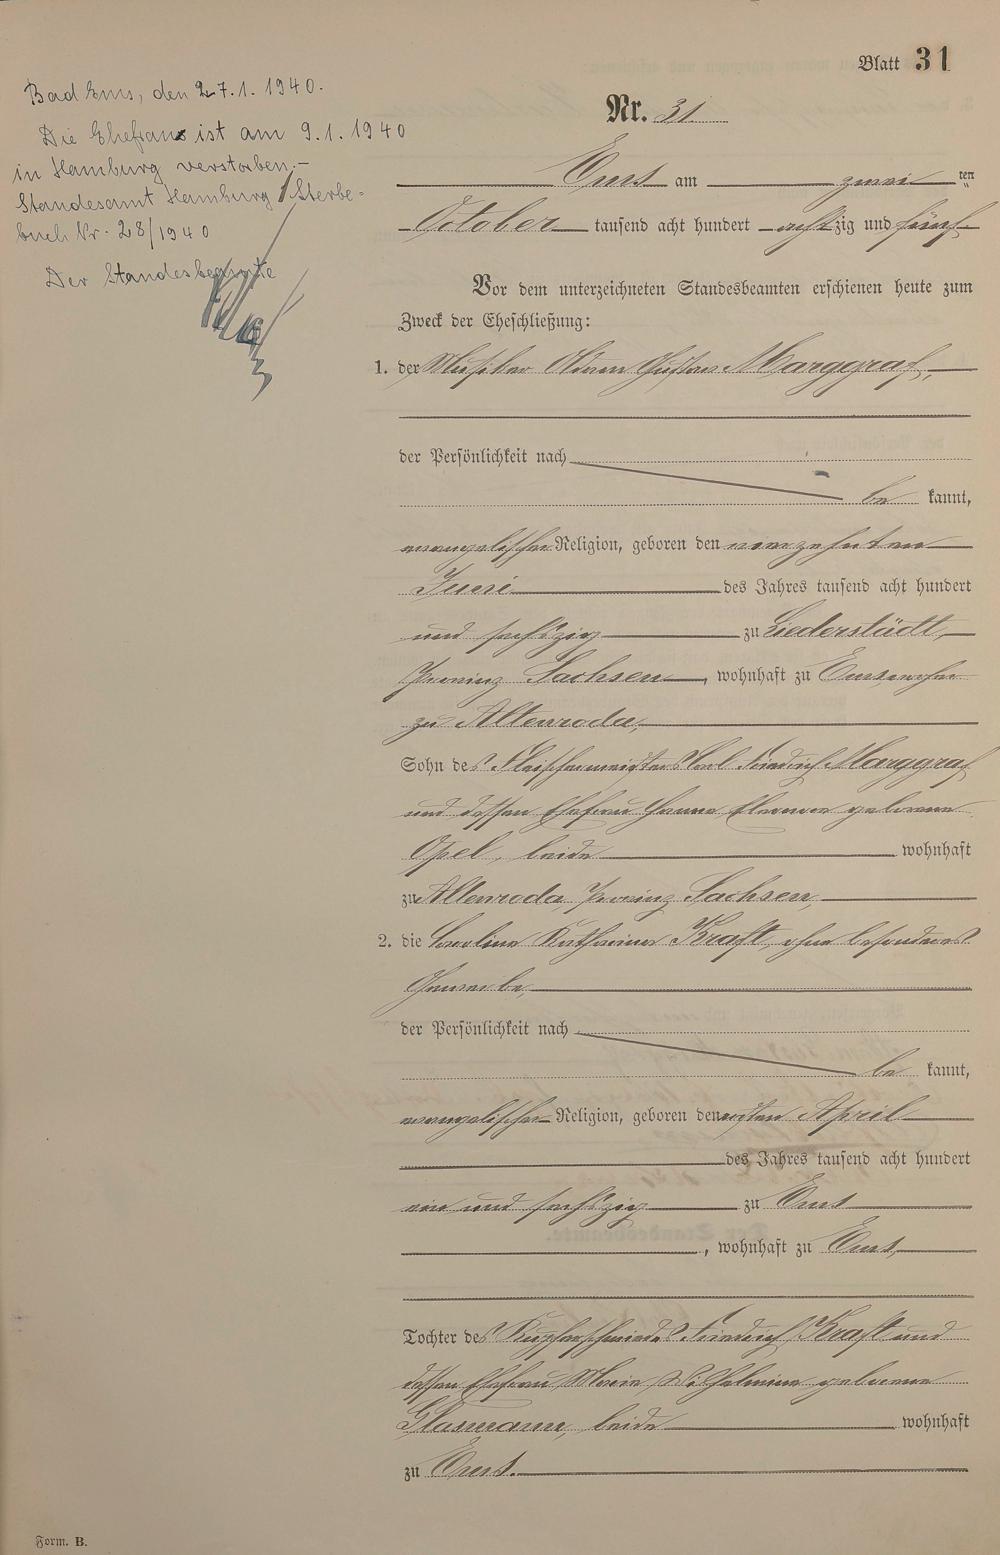 Blatt 31
Nr. 31.
Bad Ems, den 27.1.1940.
Die Ehefrau ist am 9.1.1940
in Hamburg verstorben.-
Standesamt Hamburg 1 Sterbe-
buch Nr. 28/1940
Der Standesbeamte
Ems am zwei ten
October tausend acht hundert achtzig und fünf
Vor dem unterzeichneten Standesbeamten erschienen heute zum
Zweck der Eheschließung:
1. der Musiker Gustav Marggraf,
der Persönlichkeit nach
be kannt,
evangelischer Religion, geboren den vierzehnten
Juni des Jahres tausend acht hundert
und sechszig zu Liederstädt,
Provinz Sachsen, wohnhaft zu Ems, vorher
zu Altenroda,
Sohn des Fleischermeisters Karl Friedrich Marggraf
und dessen Ehefrau Hanne Eleonore geborene
Opel, beide wohnhaft
zu Altenroda, Provinz Sachsen,
2. die Caroline Katharina Kraft, ohne besonderes
Gewerbe,
der Persönlichkeit nach
be kannt,
evangelischer Religion, geboren den ersten April
des Jahres tausend acht hundert
ein und sechszig zu Ems
, wohnhaft zu Ems,
Tochter des Kupferschmiedes Friedrich Kraft und
dessen Ehefrau Marie Wilhelmine geborene
Glasmann, beide wohnhaft
zu Ems.
Form. B.